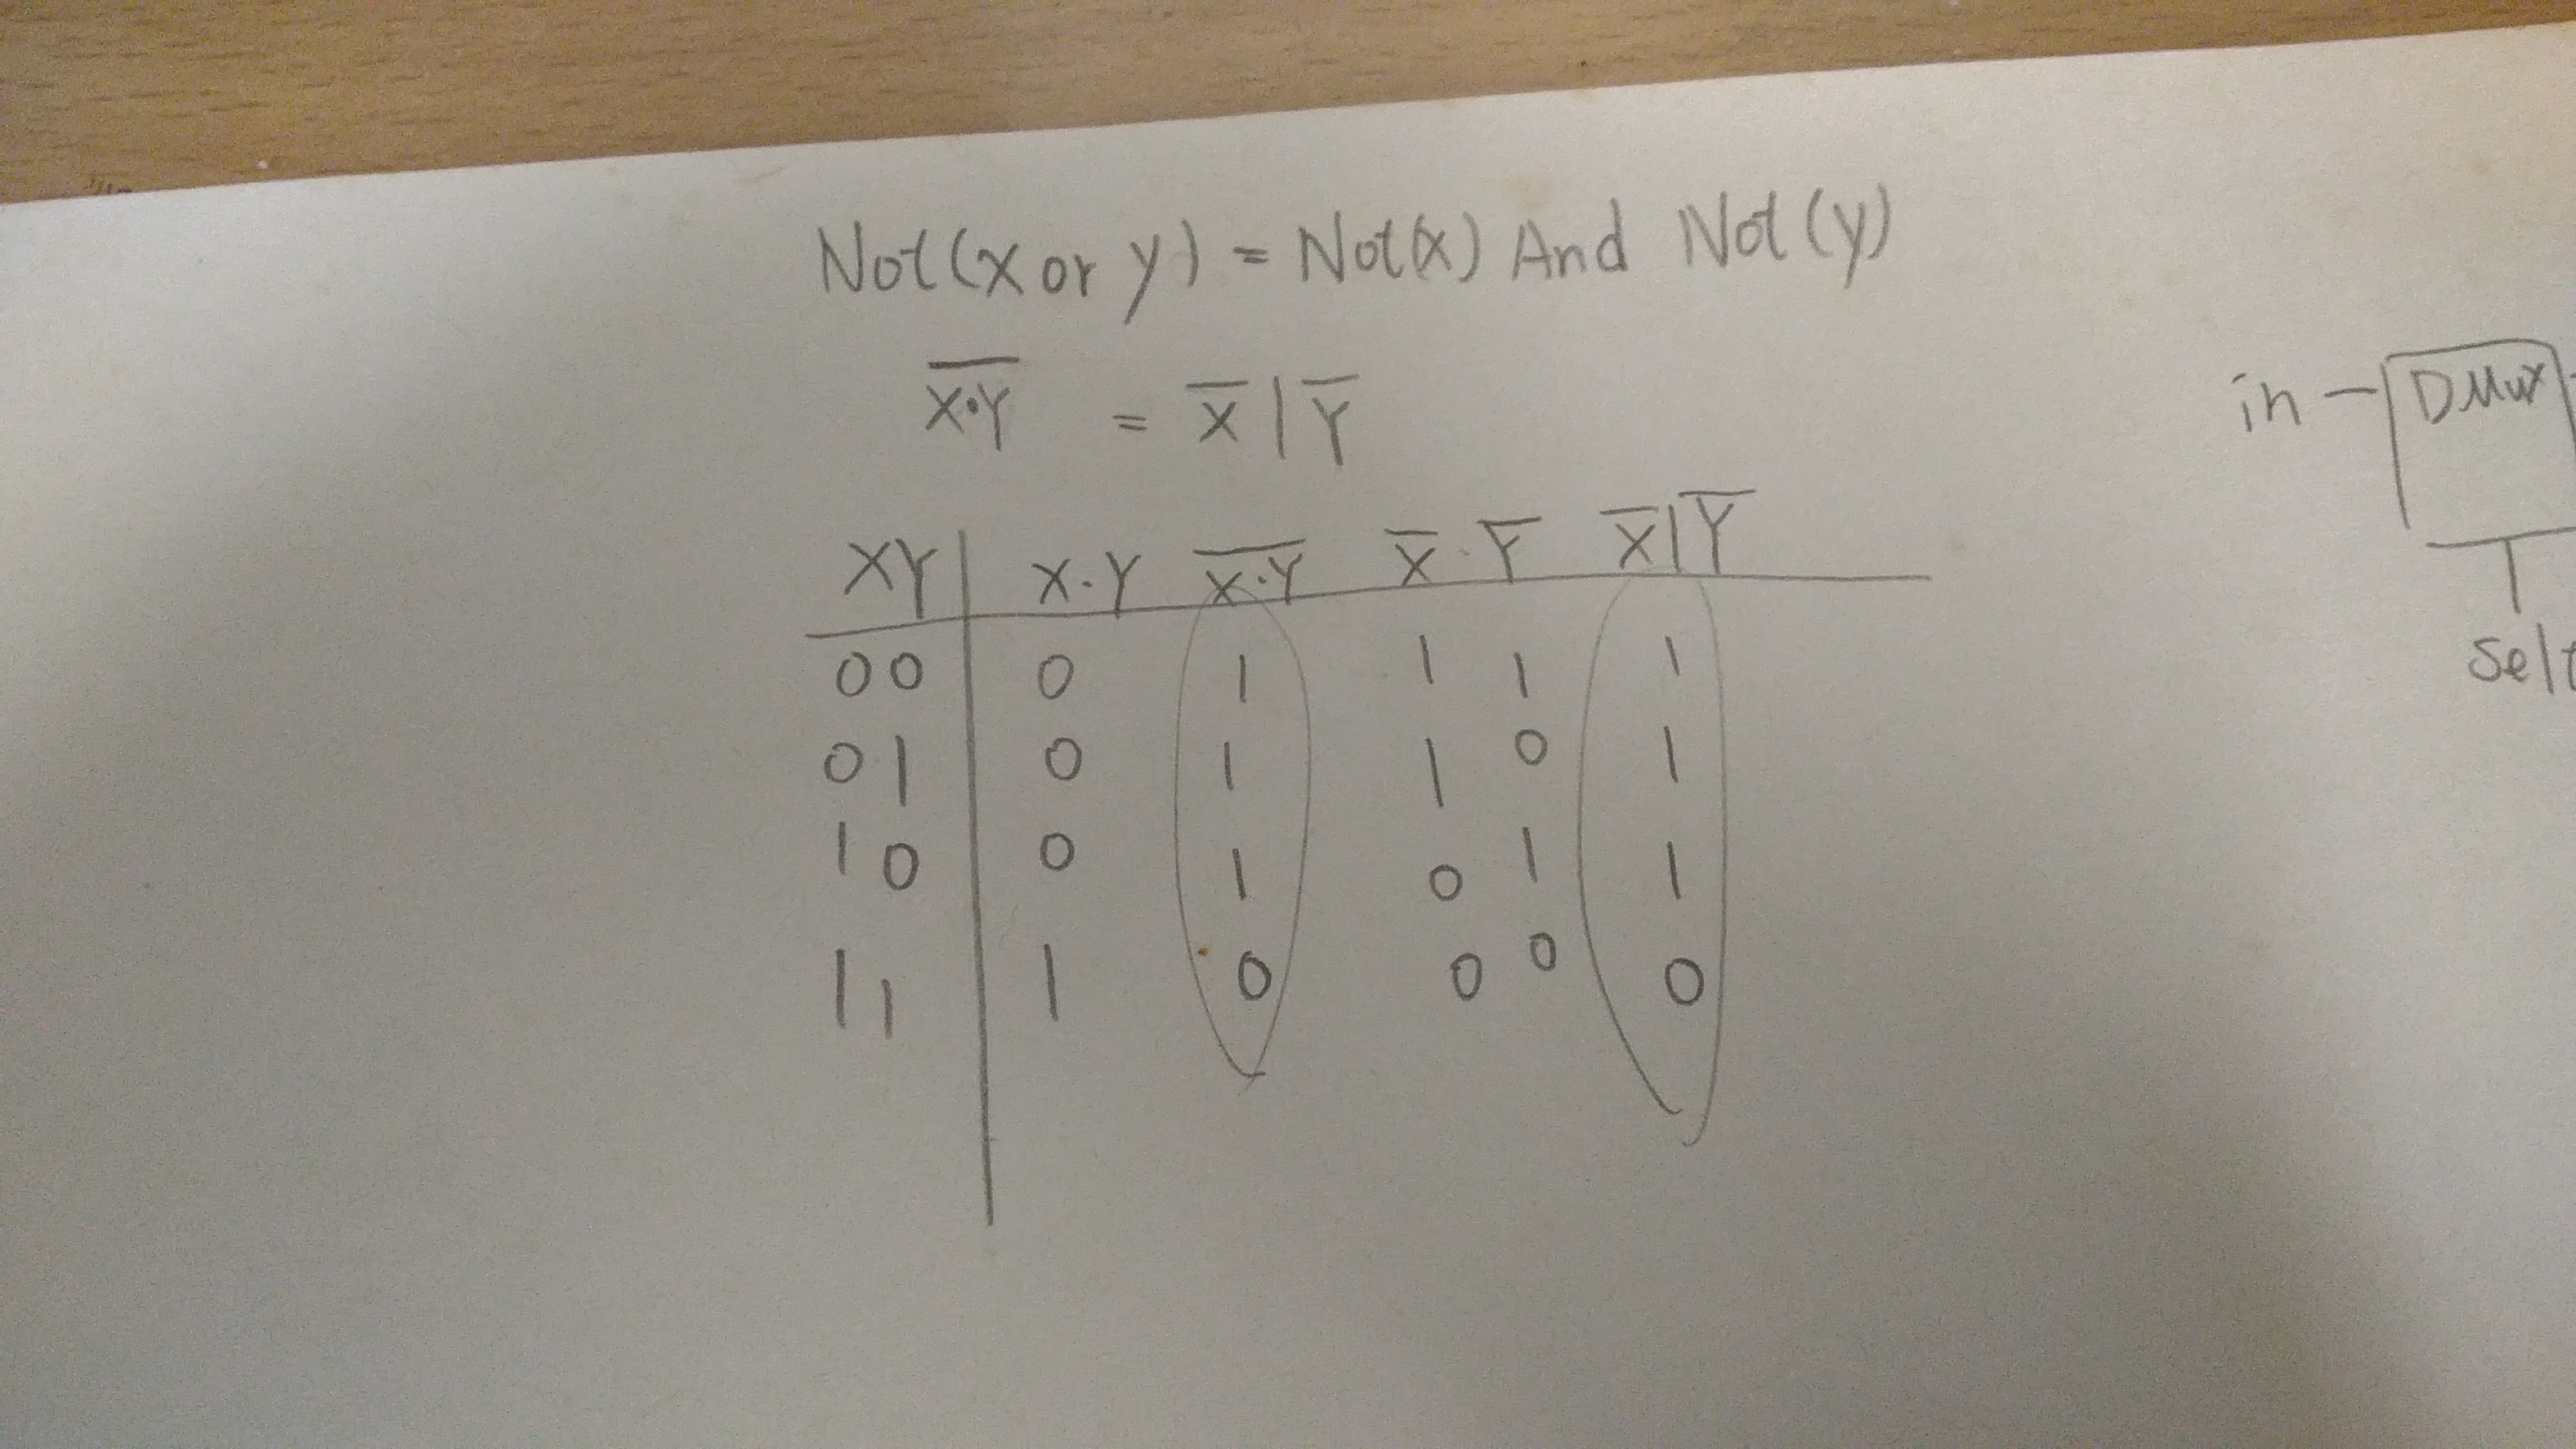 Not(x or y) = Not(x) And Not(y)
X̅·̅Y̅ = X̅ | Y̅
XY X·Y X̅·̅Y̅ X̅ Y̅ X̅|Y̅
00 0 1 1 1 1
01 0 1 1 0 1
10 0 1 0 1 1
11 1 0 0 0 0
in DMux